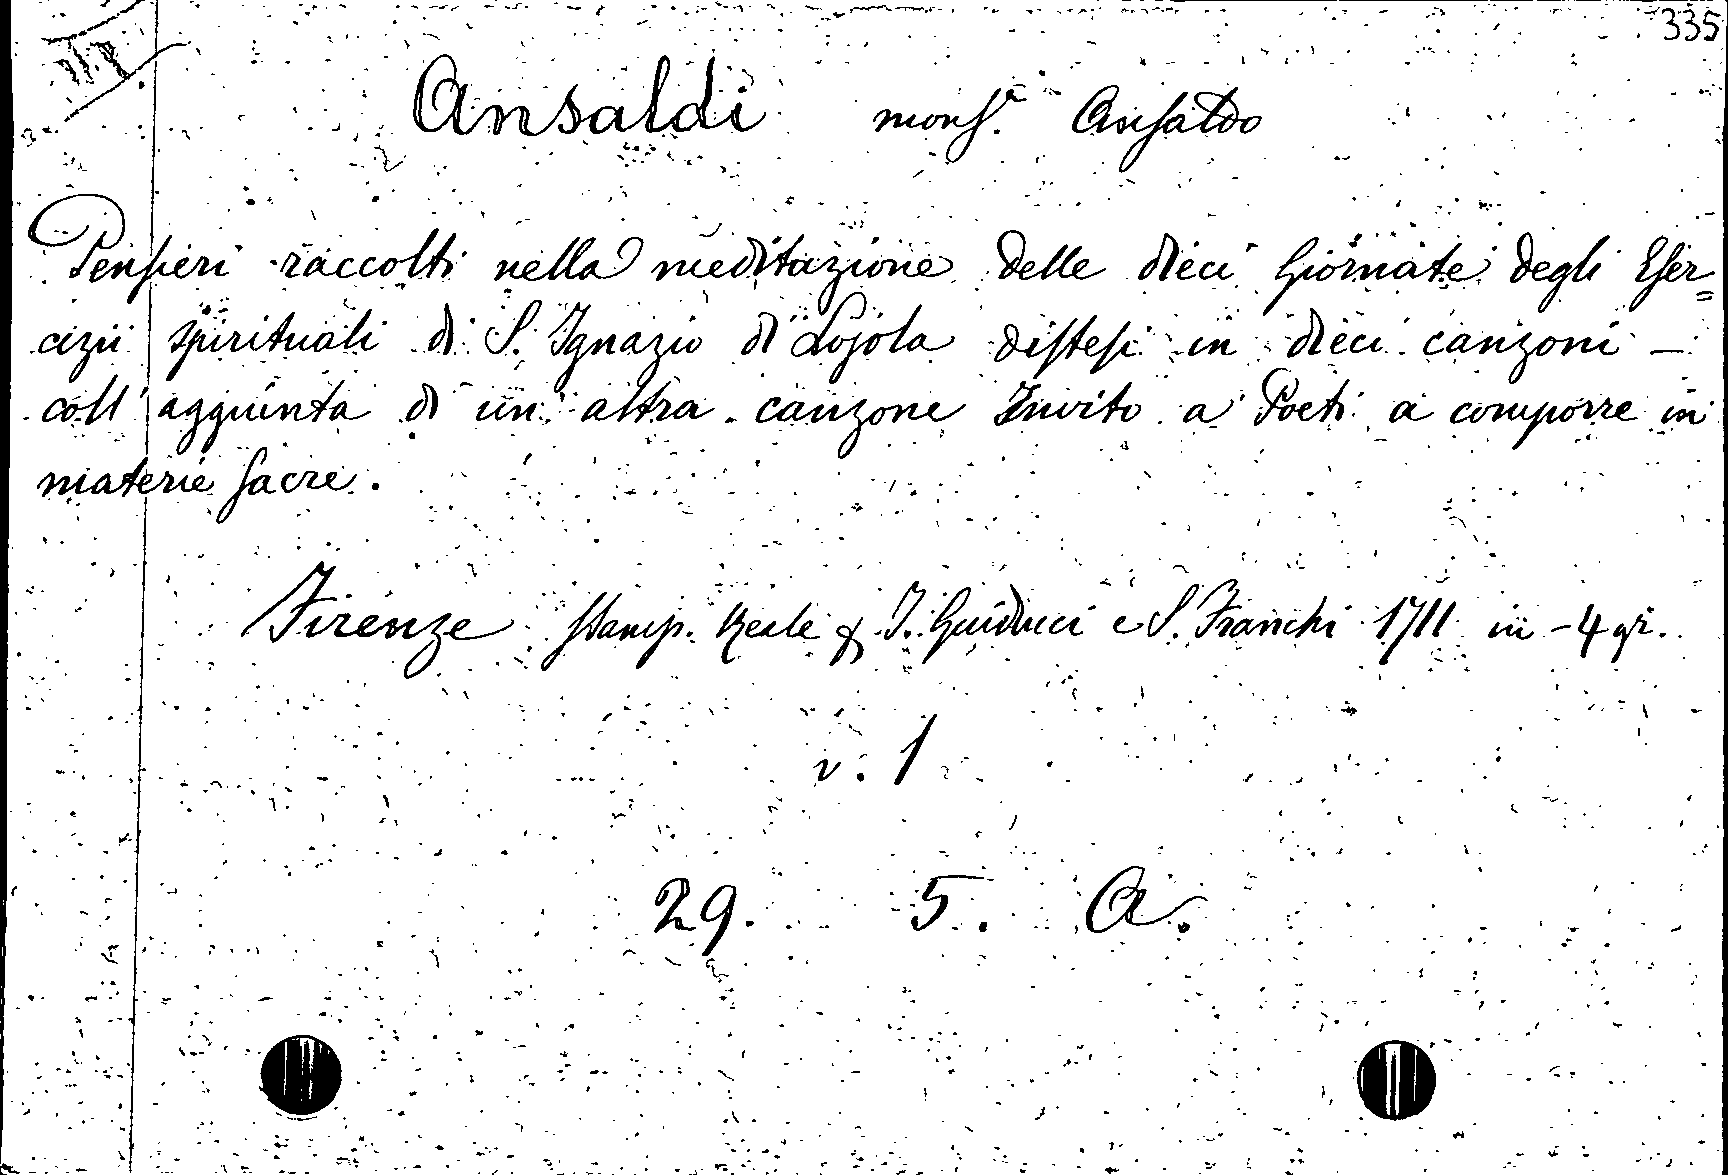 335
Ansaldi monsr. Ansaldo
Pensieri raccolti nella meditazione delle dieci Giornate degli Eser=
cizii spirituali di S. Ignazio di Lojola distesi in dieci canzoni –
coll' aggiunta di un' altra canzone Invito a Poeti a comporre in
materie sacre.
Firenze Stamp. Reale J. Guiducci e S. Franchi 1711 in-4 gr.
v. 1
29. 5. A.